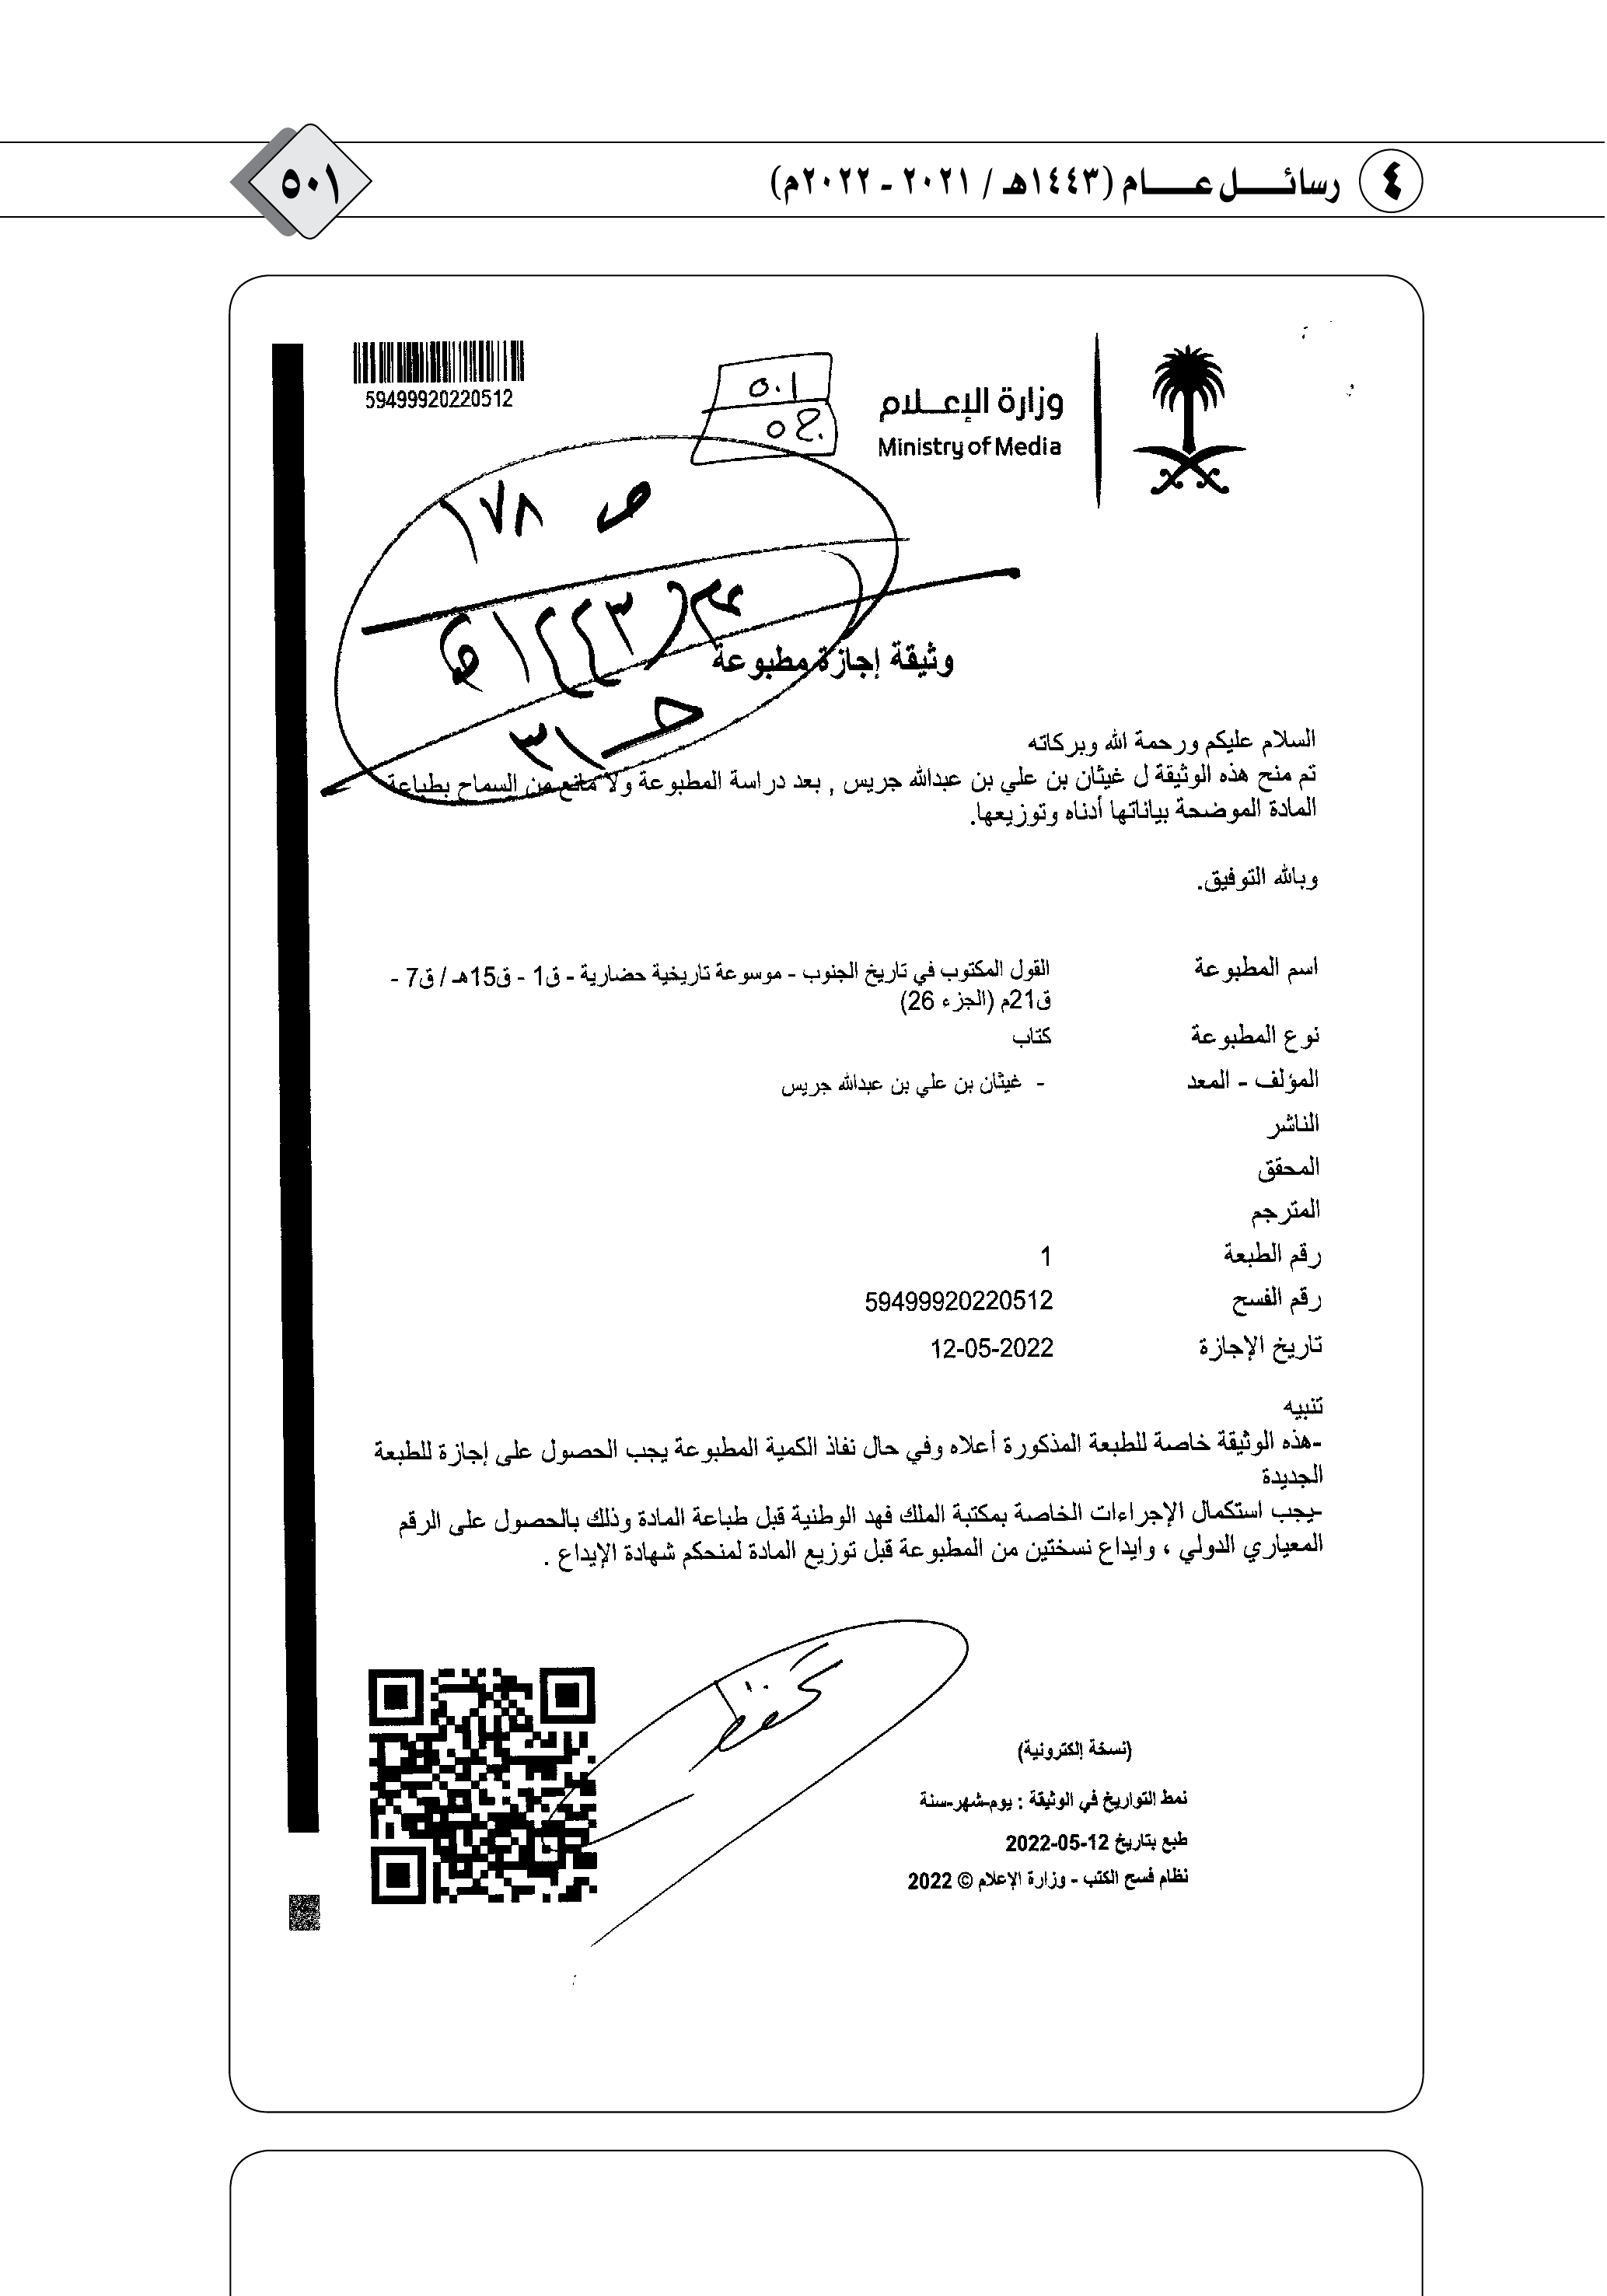 ٤ رسائــــل عــــــام (١٤٤٣هـ / ٢٠٢١ - ٢٠٢٢م)
٥٠١
59499920220512
٥٠١
وزارة الإعـــلام
Ministry of Media
ص ١٧٨
١٤٤٣هـ
حـ ٣١
وثيقة إجازة مطبوعة
السلام عليكم ورحمة الله وبركاته
تم منح هذه الوثيقة ل غيثان بن علي بن عبدالله جريس , بعد دراسة المطبوعة ولا مانع من السماح بطباعة
المادة الموضحة بياناتها أدناه وتوزيعها.
وبالله التوفيق.
اسم المطبوعة القول المكتوب في تاريخ الجنوب - موسوعة تاريخية حضارية - ق1 - ق15هـ / ق7 -
ق21م (الجزء 26)
نوع المطبوعة كتاب
المؤلف - المعد - غيثان بن علي بن عبدالله جريس
الناشر
المحقق
المترجم
رقم الطبعة 1
رقم الفسح 59499920220512
تاريخ الإجازة 12-05-2022
تنبيه
-هذه الوثيقة خاصة للطبعة المذكورة أعلاه وفي حال نفاذ الكمية المطبوعة يجب الحصول على إجازة للطبعة
الجديدة
-يجب استكمال الإجراءات الخاصة بمكتبة الملك فهد الوطنية قبل طباعة المادة وذلك بالحصول على الرقم
المعياري الدولي ، وايداع نسختين من المطبوعة قبل توزيع المادة لمنحكم شهادة الإيداع .
تحفظ
(نسخة إلكترونية)
نمط التواريخ في الوثيقة : يوم-شهر-سنة
طبع بتاريخ 12-05-2022
نظام فسح الكتب - وزارة الإعلام © 2022